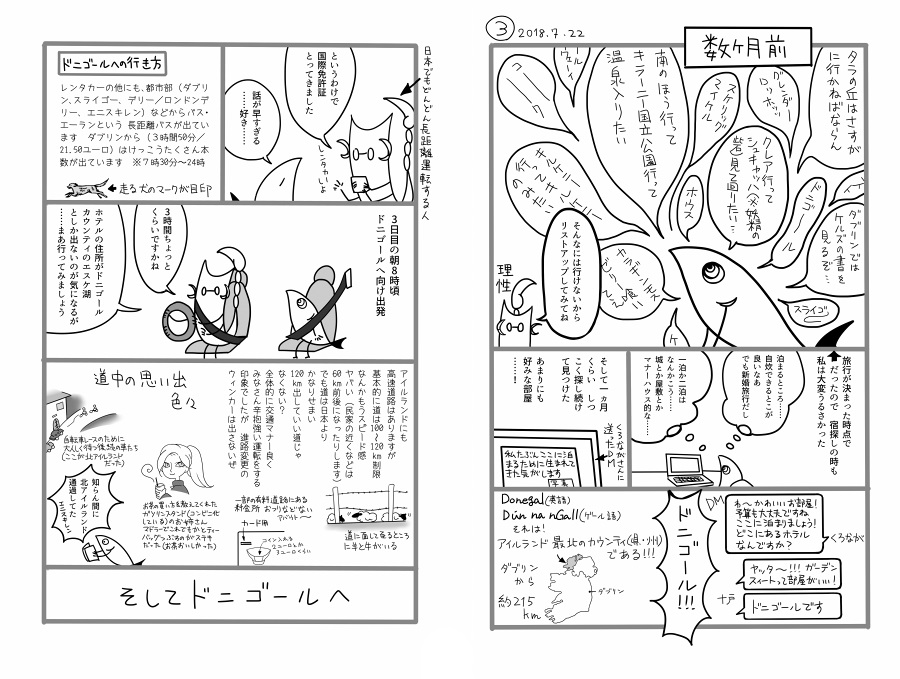 ③ 2018.7.22
数ヶ月前
タラの丘はさすが
に行かねばならん
グレンダー
ロッホッ
スケリッグ
マイケル
南のほう行って
キラーニー国立公園行って
温泉入りたい
コーク
クレア行って
シュキャッハ(※妖精の
砦)見て回りたい…
ドニゴール
ダブリンでは
ケルズの書を
見るぞ…
ホウス
キルケニー
行ってキルケニー
の行って
みたい
カラギンモス
スライゴ
そんなには行けないから
リストアップしてみてね
理性
旅行が決まった時点で
私は大変うるさかった
だったので 宿探しの時も
泊まるところ……
自炊できるとこが
良いなあ
でも新婚旅行だし
一泊か二泊は
なんかこう……
城とか屋敷とか
マナーハウス的な…
そして一ヵ月
くらい しつ
こく探し続け
て見つけた
あまりにも
好みな部屋
……！
くろながさんに
送ったDM
私たぶんここに泊
まるために生まれて
きた気がします
写真
Donegal(英語)
Dún na nGall(ゲール語)
それは！
アイルランド 最北のカウンティ(県・州)
である!!!
ダブリン
から
約215
km
ダブリン
ドニゴール!!!
DM
わ〜かわいいお部屋！
予算も大丈夫ですね
ここに泊まりましょう！
どこにあるホテル
なんですか？
くろなが
ヤッタ〜!!! ガーデン
スイートって部屋がいい！
十戸
ドニゴールです
日本でもどんどん長距離運転する人
というわけで
国際免許証
とってきました
レンタカーしょ
話が早すぎる
……好き…
ドニゴールへの行き方
レンタカーの他にも、都市部（ダブリ
ン、スライゴー、デリー／ロンドンデ
リー、エニスキレン）などからバス・
エーランという 長距離バスが出てい
ます ダブリンから（3時間50分／
21.50ユーロ）はけっこうたくさん本
数が出ています ※7時30分〜24時
走る犬のマークが目印
3日目の朝8時頃
ドニゴールへ向け出発
3時間ちょっと
くらいですかね
ホテルの住所がドニゴール
カウンティのエスケ湖
としか出ないのが気になるが
……まあ行ってみましょう
アイルランドにも
高速道路はありますが
基本的に道は100〜120km制限
なんかもうスピード感
ヤバい（民家の近くなどは
60km前後になったりします）
でも道は日本より
かなりせまい
120km出していい道じゃ
なくない？
全体的に交通マナー良く
みなさん辛抱強い運転をする
印象でしたが 進路変更の
ウィンカーは出さないぜ
道中の思い出
色々
自転車レースのために
大人しく待つ後続の車たち
(ここが北アイルランド
だった)
知らん間に
北アイルランド
通過してた
エニスキレン
お茶の買い方を教えてくれた
ガソリンスタンド(コンビニ化
している)のお姉さん
マドラーでこれでもかとティー
バッグつぶすのがステキ
だった(お茶おいしかった)
一部の有料道路にある
料金所 おつりなどない
アバウト〜
カード用
コイン入れる
2ユーロとか
3ユーロくらい
道に面して至るところ
に羊と牛がいる
そしてドニゴールへ